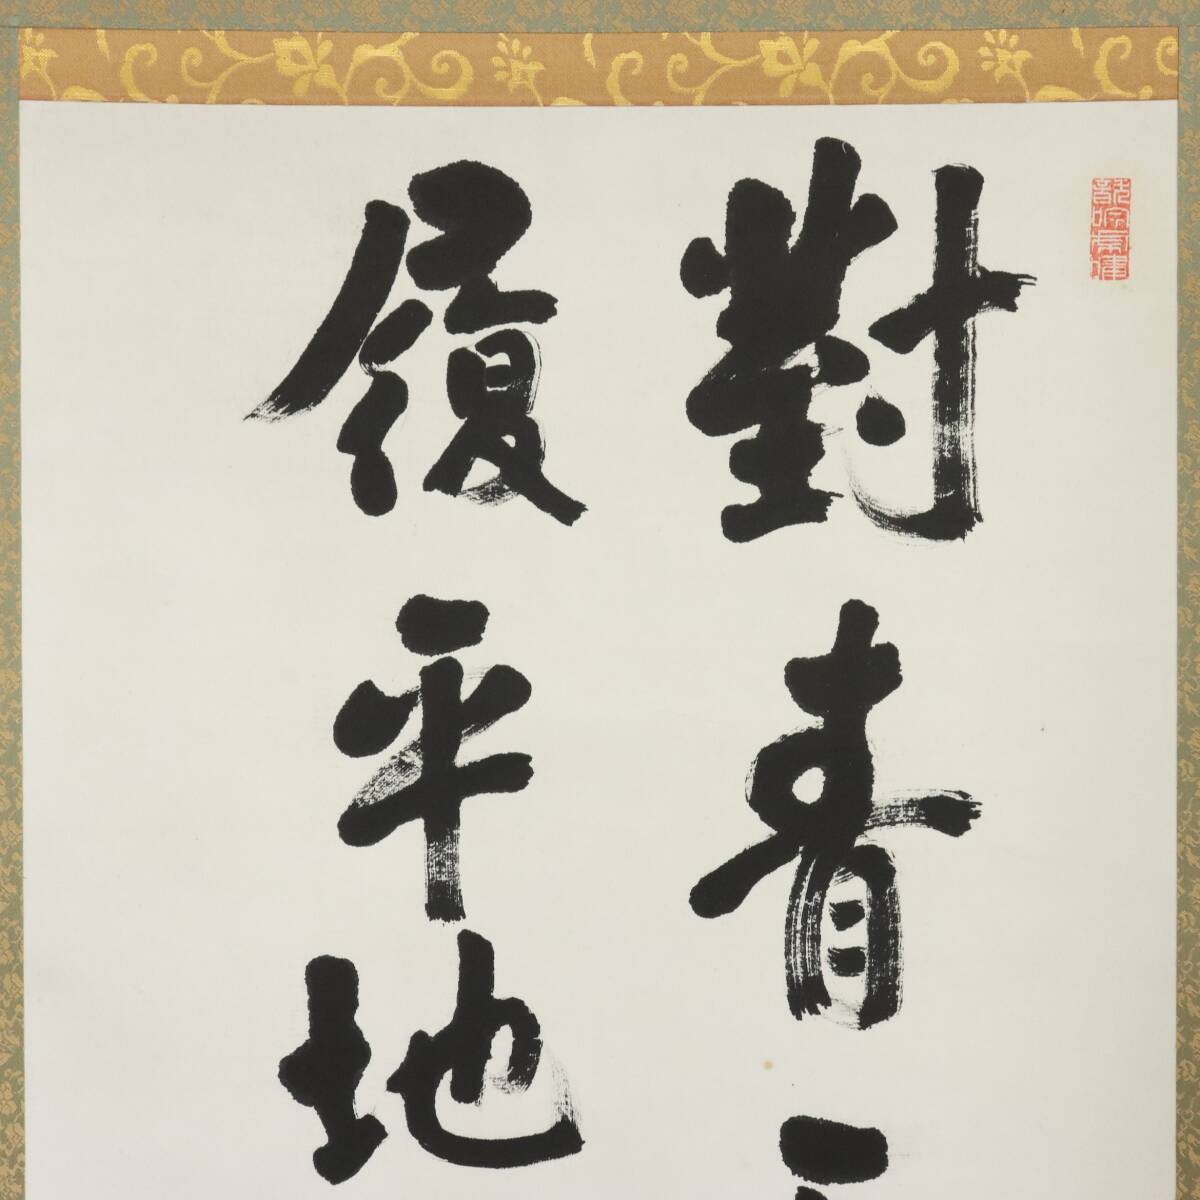 對青
履平地